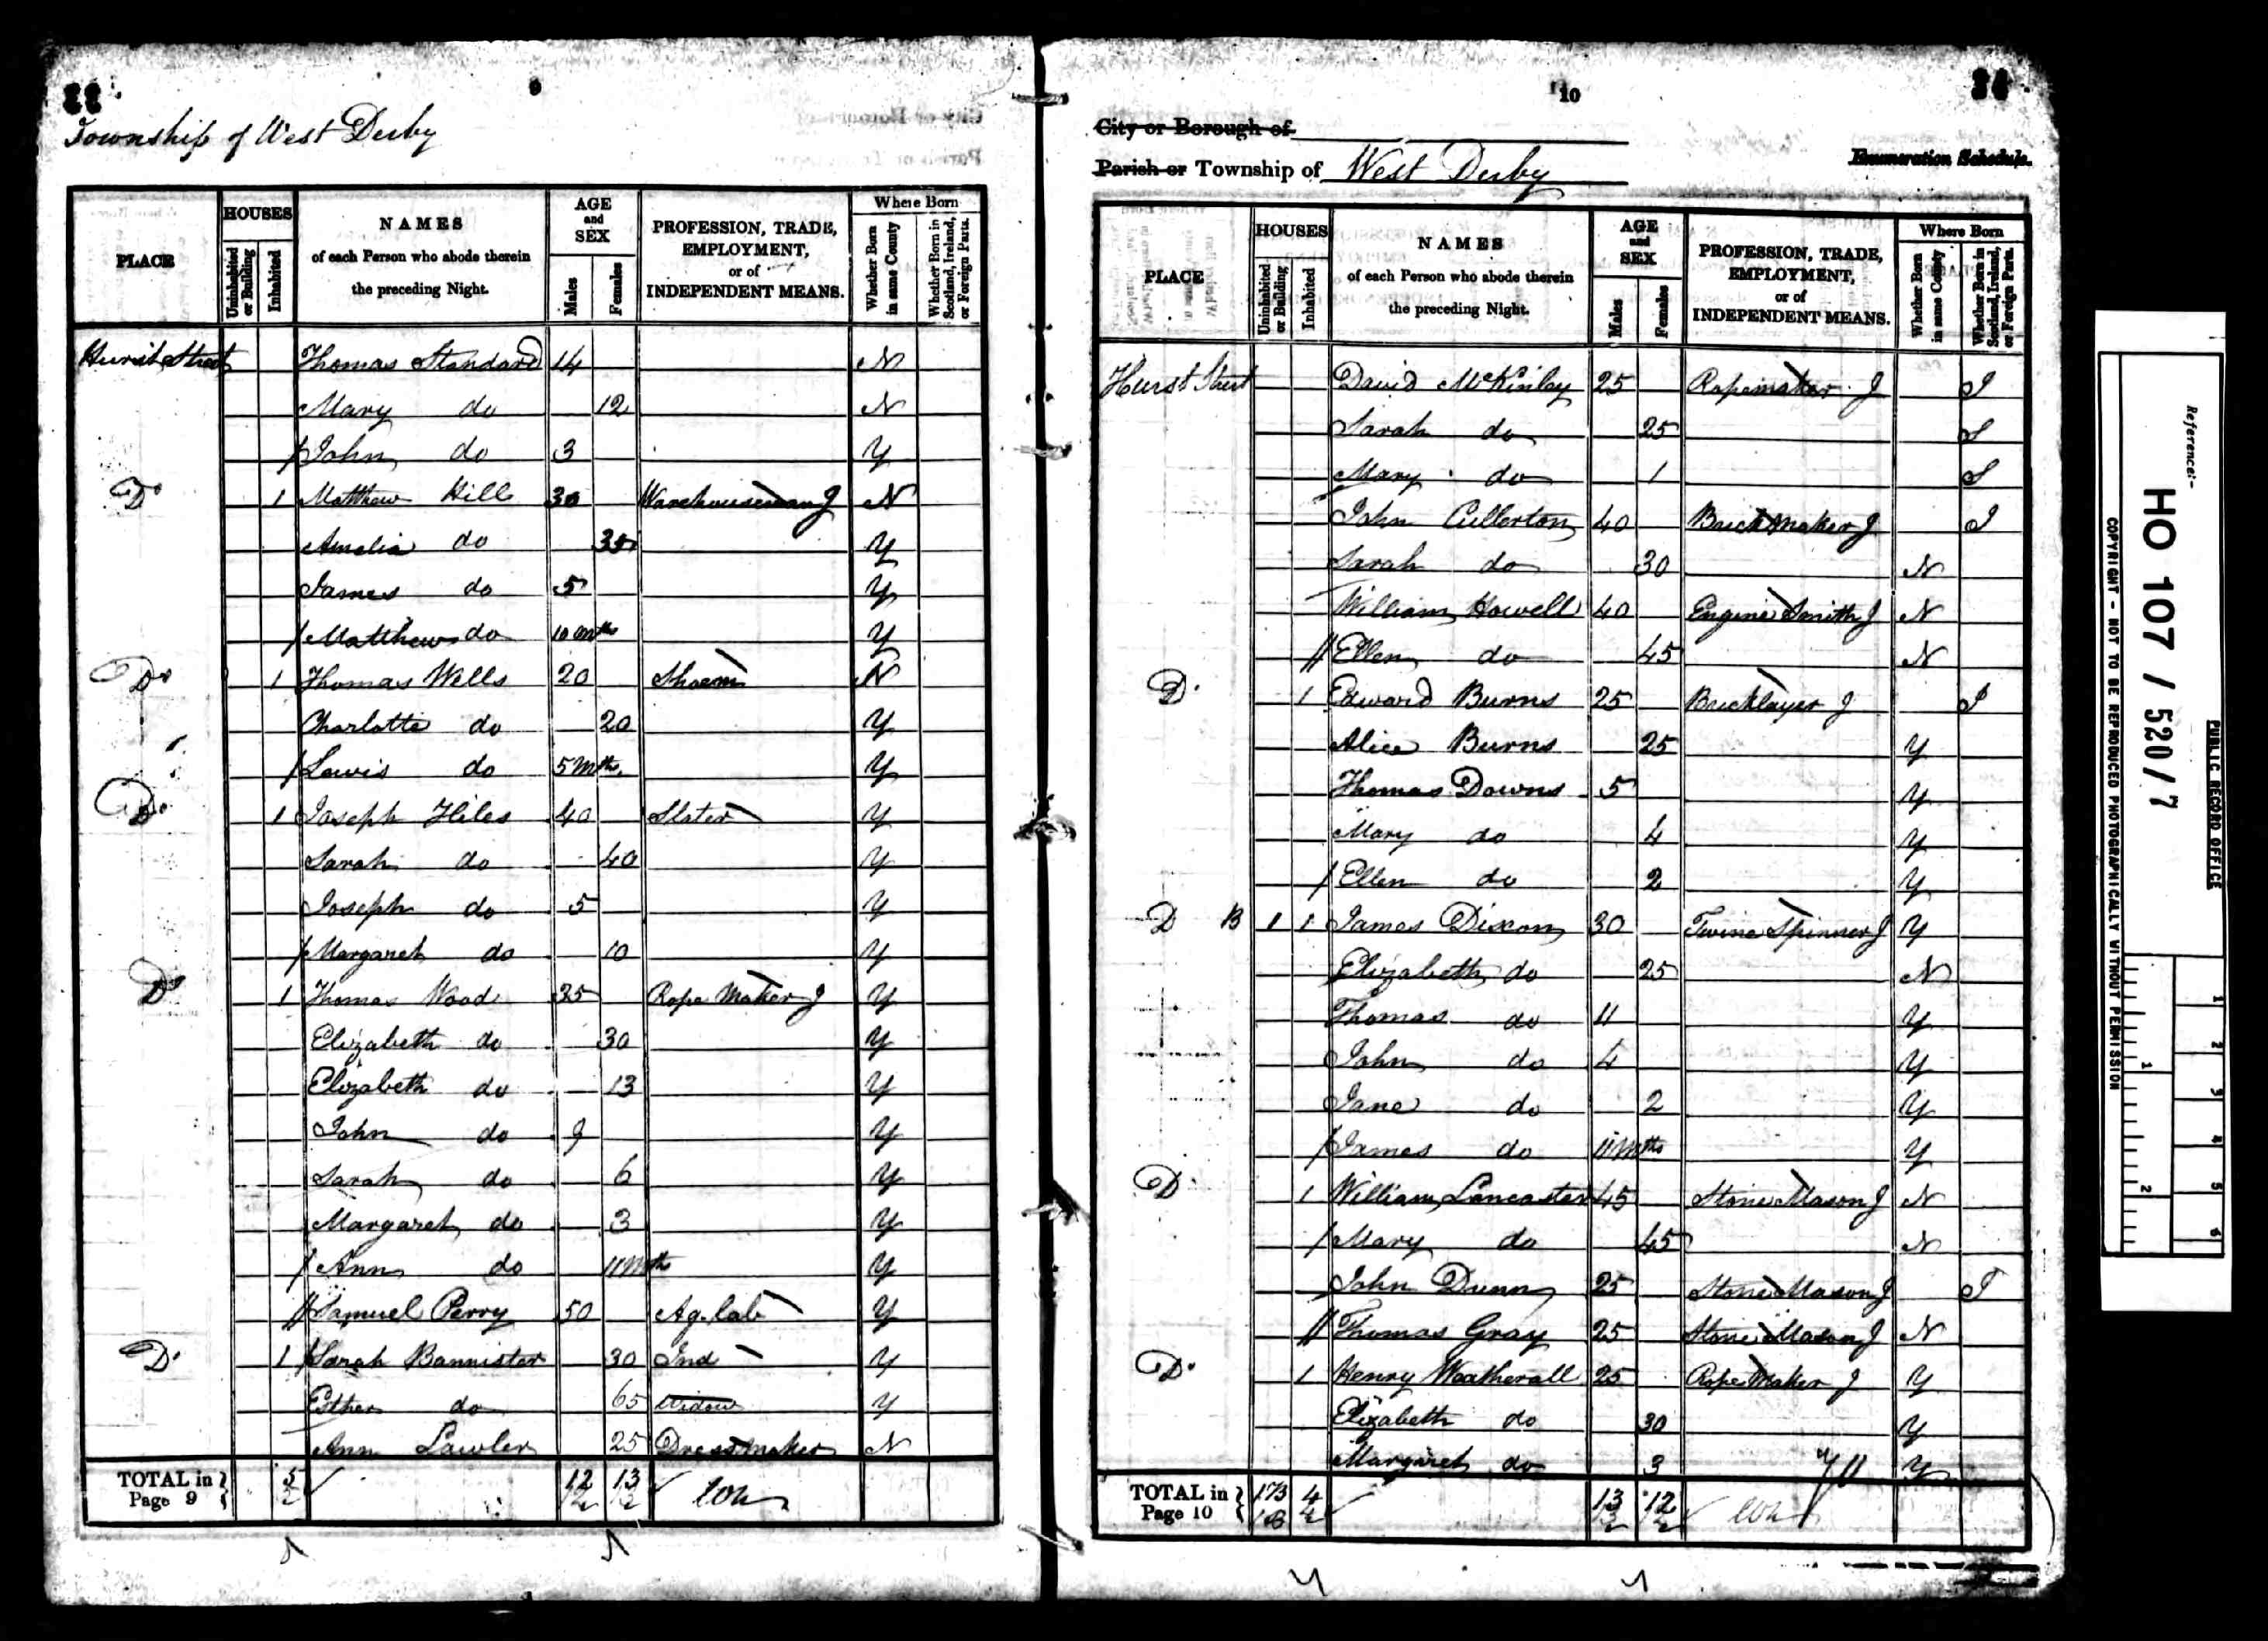 9
Township of West Derby
PLACE
HOUSES
Uninhabited or Building
Inhabited
NAMES
of each Person who abode therein
the preceding Night.
AGE
and
SEX
Males
Females
PROFESSION, TRADE,
EMPLOYMENT,
or of
INDEPENDENT MEANS.
Where Born
Whether Born in same County
Whether Born in Scotland, Ireland, or Foreign Parts.
Hurst Street Thomas Standard 14 N
Mary do 12 N
/ John do 3 Y
Do 1 Matthew Hill 30 Warehouseman J N
Amelia do 35 Y
James do 5 Y
/ Matthew do 10 Mths Y
Do 1 Thomas Wells 20 Shoem N
Charlotte do 20 Y
/ Lewis do 5 Mths Y
Do 1 Joseph Hiles 40 Slater Y
Sarah do 40 Y
Joseph do 5 Y
/ Margaret do 10 Y
Do 1 Thomas Wood 35 Rope Maker J Y
Elizabeth do 30 Y
Elizabeth do 13 Y
John do 9 Y
Sarah do 6 Y
Margaret do 3 Y
/ Ann do 11 Mths Y
// Samuel Perry 50 Ag. Lab Y
Do 1 / Sarah Bannister 30 Ind Y
Esther do 65 Widow Y
Ann Lawler 25 Dressmaker N
TOTAL in
Page 9
5 12 13
10
City or Borough of
Parish or Township of West Derby
Enumeration Schedule.
PLACE
HOUSES
Uninhabited or Building
Inhabited
NAMES
of each Person who abode therein
the preceding Night.
AGE
and
SEX
Males
Females
PROFESSION, TRADE,
EMPLOYMENT,
or of
INDEPENDENT MEANS.
Where Born
Whether Born in same County
Whether Born in Scotland, Ireland, or Foreign Parts.
Hurst Street David McKinley 25 Ropemaker J I
Sarah do 25 S
Mary do 1 S
John Cullerton 40 Brickmaker J I
Sarah do 30 N
William Howell 40 Engine Smith J N
// Ellen do 45 N
Do 1 Edward Burns 25 Bricklayer J I
Alice Burns 25 Y
Thomas Downs 5 Y
Mary do 4 Y
/ Ellen do 2 Y
D B 1 1 James Dixon 30 Twine Spinner J Y
Elizabeth do 25 N
Thomas do 11 Y
John do 4 Y
Jane do 2 Y
/ James do 11 Mths Y
Do 1 William Lancaster 45 Stone Mason J N
/ Mary do 45 N
John Dunn 25 Stone Mason J I
// Thomas Gray 25 Stone Mason J N
Do 1 Henry Weatherall 25 Rope Maker J Y
Elizabeth do 30 Y
Margaret do 3 Y
TOTAL in
Page 10
1B 4 13 12
Reference:-
HO 107 / 520/7
PUBLIC RECORD OFFICE
COPYRIGHT - NOT TO BE REPRODUCED PHOTOGRAPHICALLY WITHOUT PERMISSION
1 2 3 4 5 6
1 2